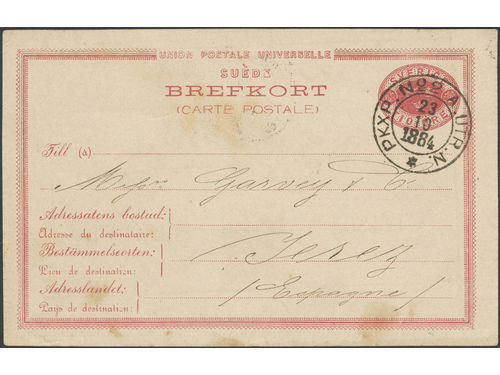 UNION POSTALE UNIVERSELLE
SUÈDE
BREFKORT
(CARTE POSTALE)
SVERIGE
TIO ÖRE
PKXP. No 2 A. UTR. N.
23
10
1884
Till (à)
Messrs Garvey & Co.
Adressatens bostad:
Adresse du destinataire:
Bestämmelseorten:
Jerez
Lieu de destination:
Adresslandet:
(Espagne)
Pays de destination: